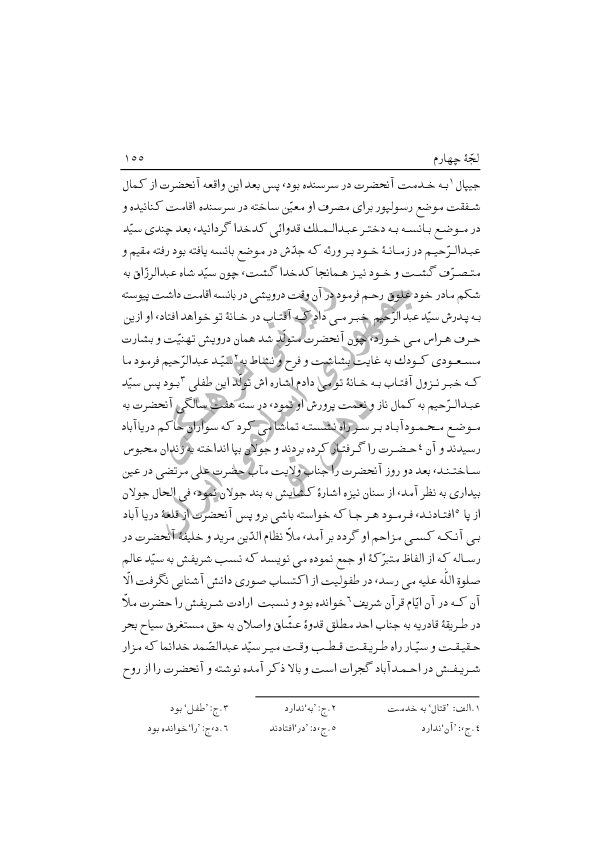 لجّهٔ چهارم ۱۵۵
جیپال۱ به خدمت آنحضرت در سرسنده بود، پس بعد این واقعه آنحضرت از کمال
شفقت موضع رسولپور برای مصرف او معیّن ساخته در سرسنده اقامت کنانیده و
در موضع بانسه به دختر عبدالملك قدوائی کدخدا گردانید، بعد چندی سیّد
عبدالرّحیم در زمانهٔ خود بر ورثه که جدّش در موضع بانسه یافته بود رفته مقیم و
متصرّف گشت و خود نیز همانجا کدخدا گشت، چون سیّد شاه عبدالرزّاق به
شکم مادر خود علوق رحم فرمود در آن وقت درویشی در بانسه اقامت داشت پیوسته
به پدرش سیّد عبدالرّحیم خبر می داد که آفتاب در خانهٔ تو خواهد افتاد، او ازین
حرف هراس می خورد، چون آنحضرت متولّد شد همان درویش تهنیّت و بشارت
مسعودی کودك به غایت بشاشت و فرح و نشاط به۲ سیّد عبدالرّحیم فرمود ما
که خبر نزول آفتاب به خانهٔ تو می دادم اشاره اش تولّد این طفلی۳ بود پس سیّد
عبدالرّحیم به کمال ناز و نعمت پرورش او نمود، در سنه هفت سالگی آنحضرت به
موضع محمودآباد بر سر راه نشسته تماشا می کرد که سواران حاکم دریاآباد
رسیدند و آن۴ حضرت را گرفتار کرده بردند و جولان بپا انداخته به زندان محبوس
ساختند، بعد دو روز آنحضرت را جناب ولایت مآب حضرت علی مرتضی در عین
بیداری به نظر آمد، از سنان نیزه اشارهٔ کشایش به بند جولان نمود، فی الحال جولان
از پا۵ افتادند، فرمود هر جا که خواسته باشی برو پس آنحضرت از قلعهٔ دریا آباد
بی آنکه کسی مزاحم او گردد بر آمد، ملّا نظام الدّین مرید و خلیفهٔ آنحضرت در
رساله که از الفاظ متبرّکهٔ او جمع نموده می نویسد که نسب شریفش به سیّد عالم
صلوة اللّه علیه می رسد، در طفولیت از اکتساب صوری دانش آشنایی نگرفت الّا
آن که در آن ایّام قرآن شریف۶ خوانده بود و نسبت ارادت شریفش را حضرت ملّا
در طریقهٔ قادریه به جناب احد مطلق قدوهٔ عشّاق واصلان به حق مستغرق سیاح بحر
حقیقت و سیّار راه طریقت قطب وقت میر سیّد عبدالصّمد خدانما که مزار
شریفش در احمدآباد گجرات است و بالا ذکر آمده نوشته و آنحضرت را از روح
۱.الف: 'قتال' به خدمت ۲.ج: 'به' ندارد ۳.ج: 'طفل' بود
۴.ج: 'آن' ندارد ۵.ج،د: 'در' افتادند ۶.د،ج: 'را' خوانده بود